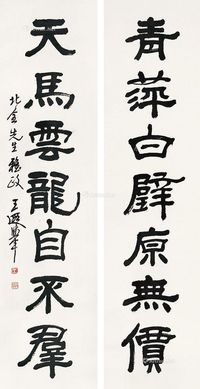 青萍白璧原無價
天馬雲龍自不羣
北仝先生雅政
王遐舉